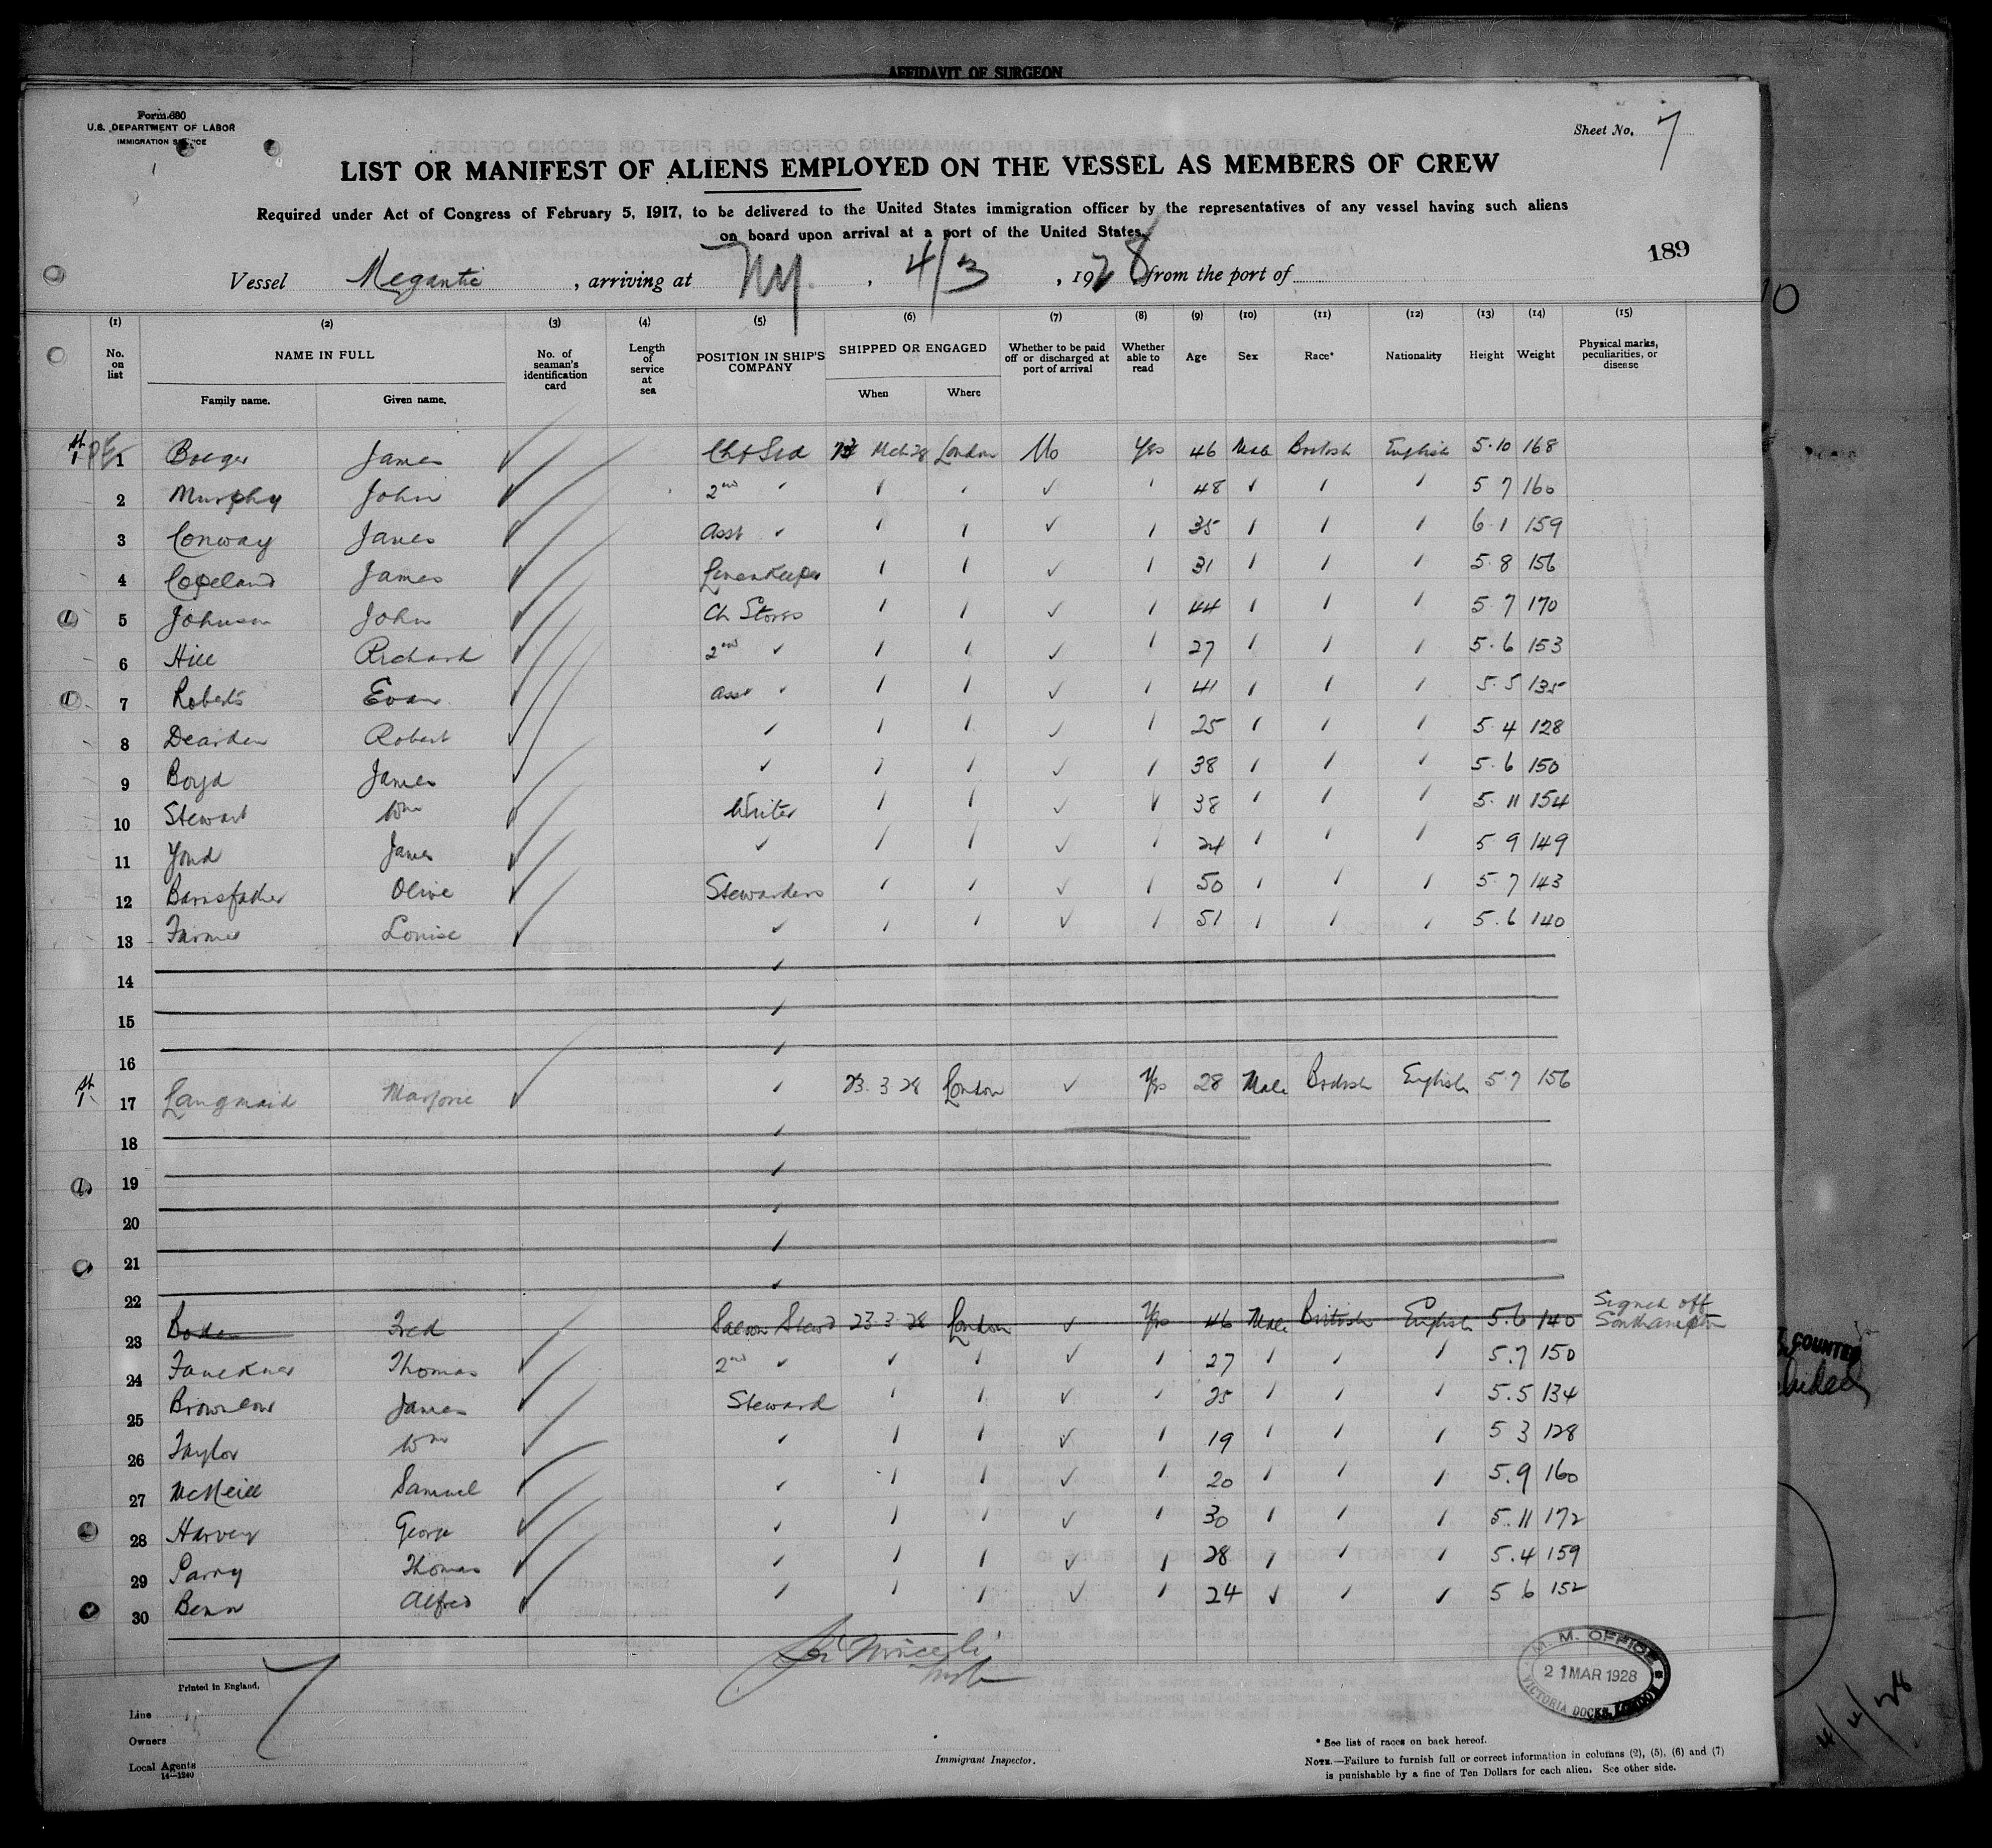 AFFIDAVIT OF SURGEON
Form 680
U.S. DEPARTMENT OF LABOR
IMMIGRATION SERVICE
Sheet No. 7
LIST OR MANIFEST OF ALIENS EMPLOYED ON THE VESSEL AS MEMBERS OF CREW
Required under Act of Congress of February 5, 1917, to be delivered to the United States immigration officer by the representatives of any vessel having such aliens
on board upon arrival at a port of the United States.
189
Vessel Megantic, arriving at NY., 4/3, 1928 from the port of
(1) (2) (3) (4) (5) (6) (7) (8) (9) (10) (11) (12) (13) (14) (15)
No. on list NAME IN FULL No. of seaman's identification card Length of service at sea POSITION IN SHIP'S COMPANY SHIPPED OR ENGAGED Whether to be paid off or discharged at port of arrival Whether able to read Age Sex Race* Nationality Height Weight Physical marks, peculiarities, or disease
Family name. Given name. When Where
1 James ✓ 23 Mch 28 London No Yes 46 Male British English 5·10 168
2 Murphy John ✓ 2nd ✓ 48 5 7 160
3 Conway James ✓ Asst ✓ 35 6·1 159
4 Copeland James ✓ Linenkeeper 31 5·8 156
5 Johnson John ✓ Ch Stores 44 5 7 170
6 Hill Richard ✓ 2nd ✓ 27 5·6 153
7 Roberts Evan ✓ Asst ✓ 41 5·5 135
8 Dearden Robert ✓ ✓ 25 5 4 128
9 Boyd James ✓ ✓ 38 5·6 150
10 Stewart Wm ✓ Writer 38 5·11 154
11 Yond James ✓ ✓ 24 5 9 149
12 Bairnsfather Olive ✓ Stewardess 50 5·7 143
13 Farmer Louise ✓ ✓ 51 5·6 140
14
15
16
17 Langmaid Marjorie ✓ ✓ 23.3.28 London ✓ Yes 28 Male British English 5 7 156
18
19
20
21
22
23 Boden Fred Saloon Stewd 23.3.28 London ✓ Yes 46 Male British English 5.6 140 Signed off Southampton
24 Faulkner Thomas ✓ 2nd ✓ 27 5.7 150
25 Brownlow James ✓ Steward 25 5.5 134
26 Taylor Wm ✓ ✓ 19 5 3 128
27 McNeill Samuel ✓ ✓ 20 5.9 160
28 Harvey George ✓ ✓ 30 5.11 172
29 Parry Thomas ✓ ✓ 28 5.4 159
30 Benn Alfred ✓ ✓ 24 5 6 152
M. M. OFFICE
21 MAR 1928
VICTORIA DOCKS, LONDON
Printed in England.
7
Line
Owners
Local Agents
14—1240
Immigrant Inspector.
* See list of races on back hereof.
NOTE.—Failure to furnish full or correct information in columns (2), (5), (6) and (7)
is punishable by a fine of Ten Dollars for each alien. See other side.
COUNTED
4/4/28